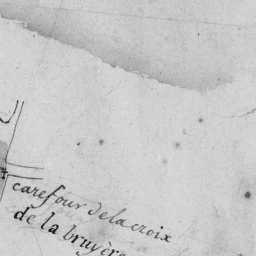 carefour de la croix
de la bruyère